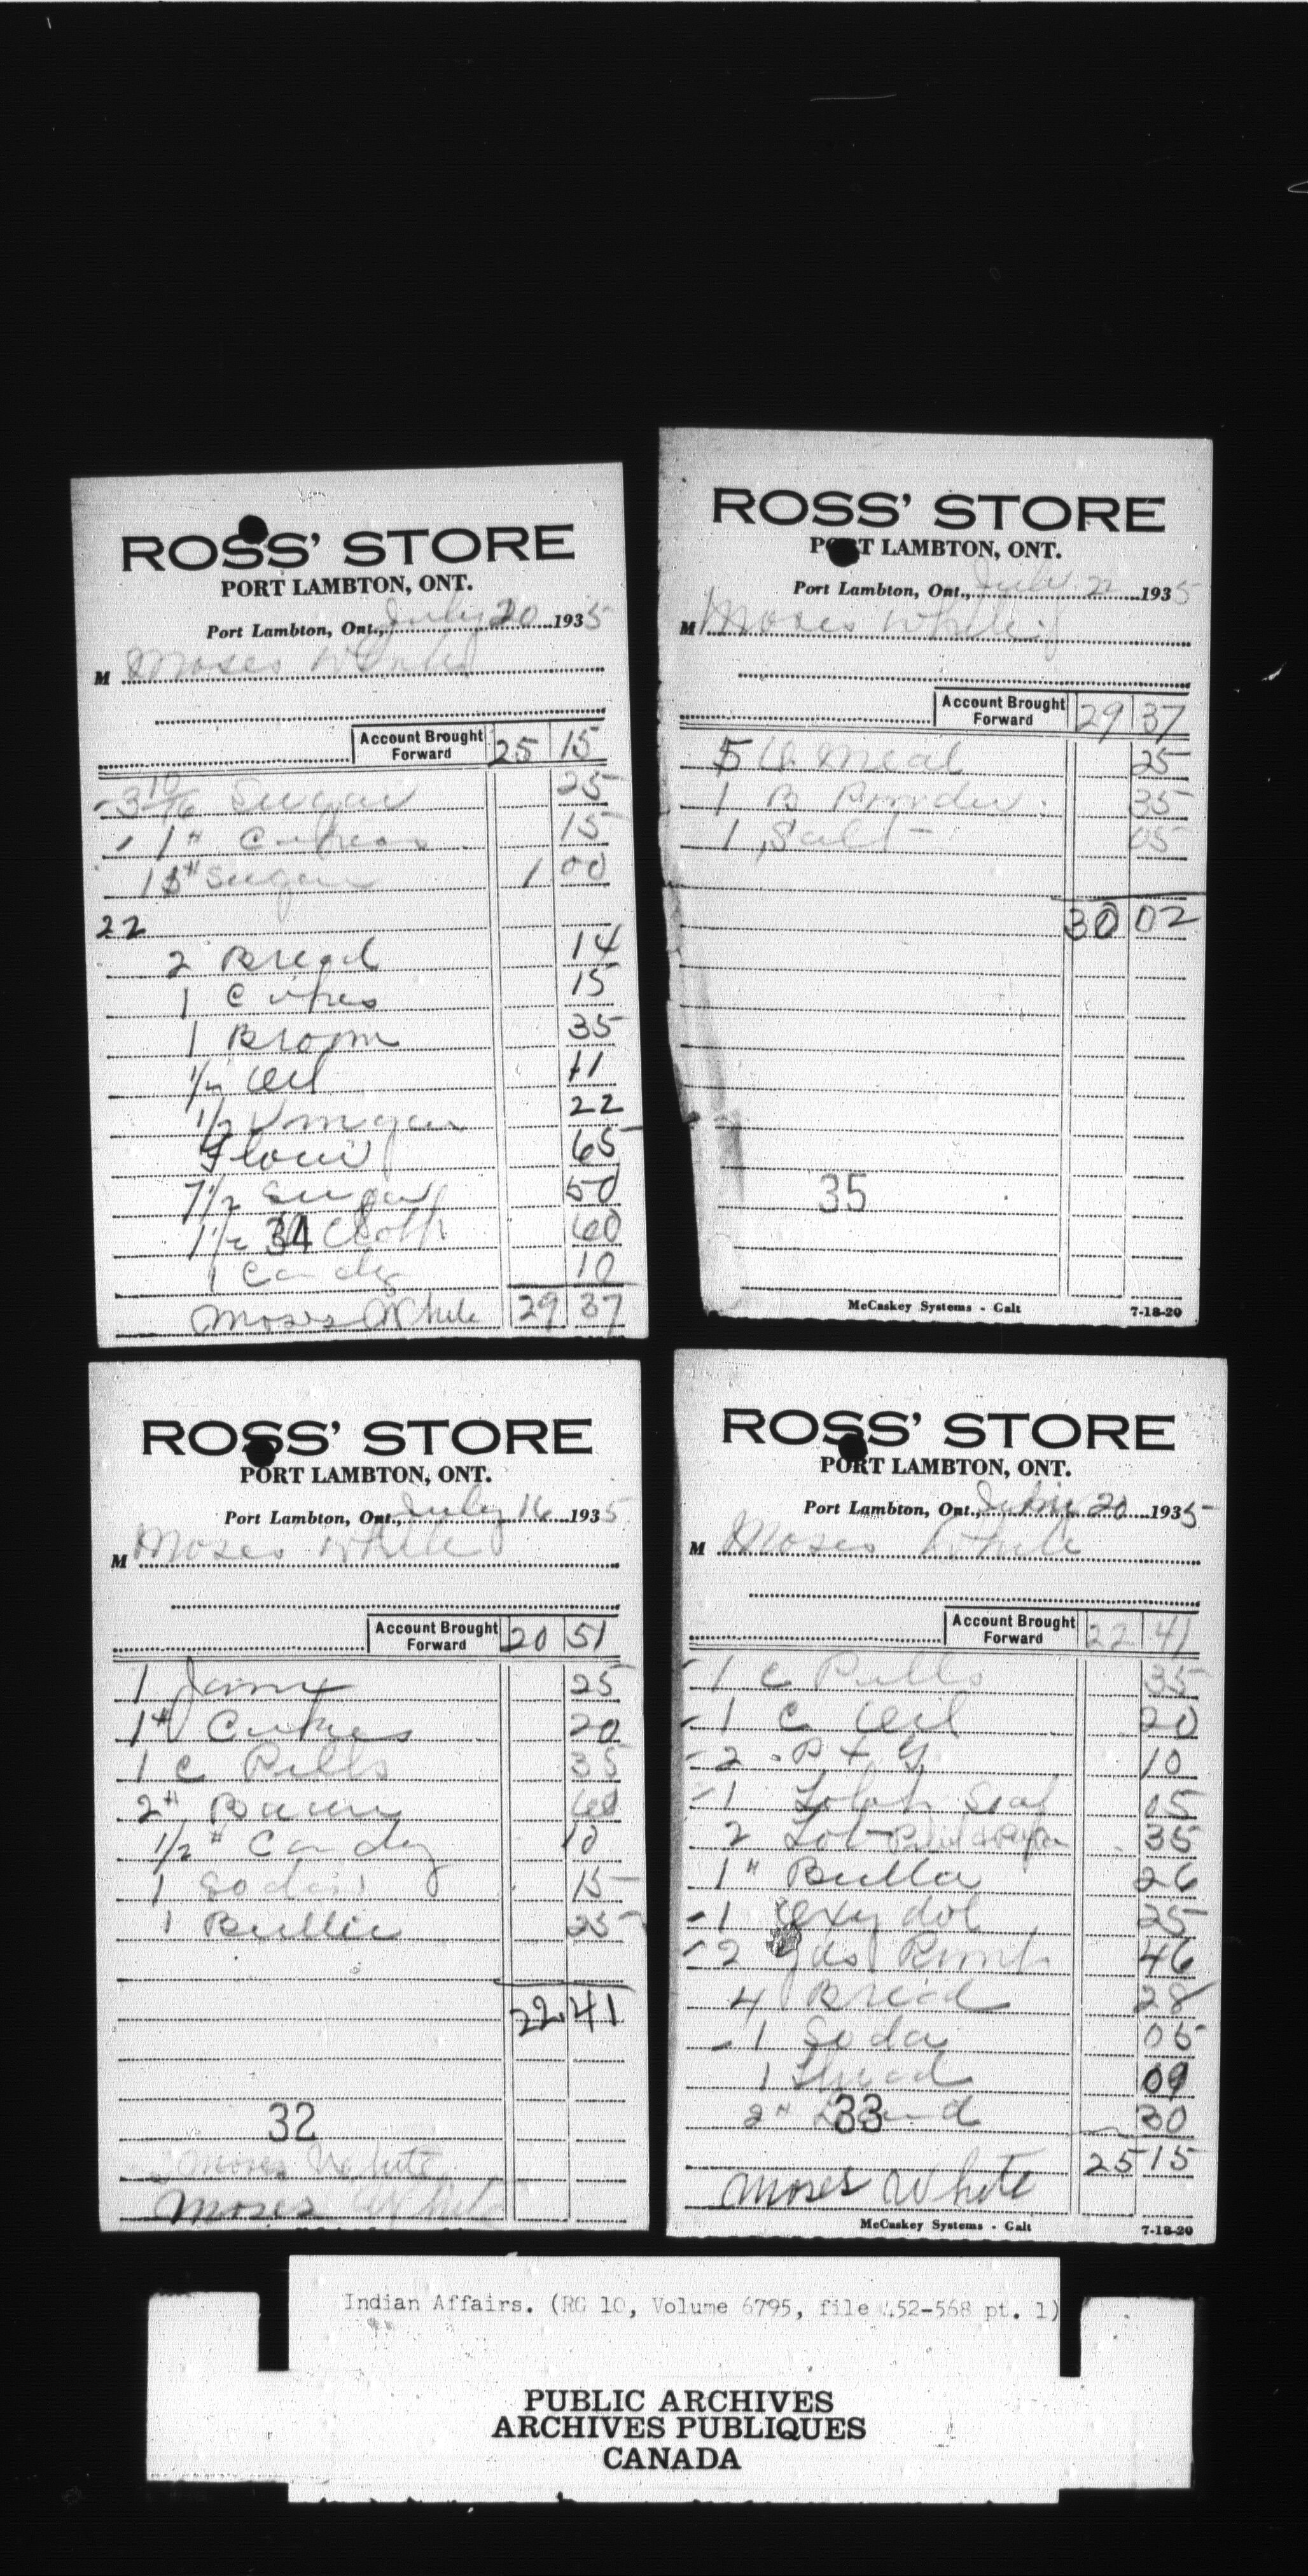 ROSS' STORE
PORT LAMBTON, ONT.
Port Lambton, Ont., July 20 1935
M Moses White
Account Brought Forward 25 15
3 10/16 Sugar 25
1 " Cukes 15
" Sugar 1 00
22
2 Bread 14
1 Cukes 15
1 Broom 35
1/2 Oil 11
1/2 Vinegar 22
Flour 65
7 1/2 Sugar 50
34 Cloth 60
1 Candy 10
Moses White 29 37
ROSS' STORE
PORT LAMBTON, ONT.
Port Lambton, Ont., July 22 1935
M Moses White
Account Brought Forward 29 37
5 lb Meal 25
1 B Powder 35
1 Salt 05
30 02
35
McCaskey Systems - Galt 7-18-20
ROSS' STORE
PORT LAMBTON, ONT.
Port Lambton, Ont., July 16 1935
M Moses White
Account Brought Forward 20 51
1 Jam 25
1 " Cukes 20
1 C Pills 35
2 " Bacon 60
1/2 " Candy 10
1 Sodas 15
1 Butter 25
22 41
32
Moses White
Moses White
ROSS' STORE
PORT LAMBTON, ONT.
Port Lambton, Ont., 20 1935
M Moses White
Account Brought Forward 22 41
1 C Pills 35
1 C Oil 20
2 P + G 10
1 15
2 35
1 " Butter 26
1 Oxydol 25
2 yds Print 46
4 Bread 28
1 Soda 05
1 Thread 09
2 " 33 30
25 15
Moses White
McCaskey Systems - Galt 7-18-20
Indian Affairs. (RG 10, Volume 6795, file 452-568 pt. 1)
PUBLIC ARCHIVES
ARCHIVES PUBLIQUES
CANADA